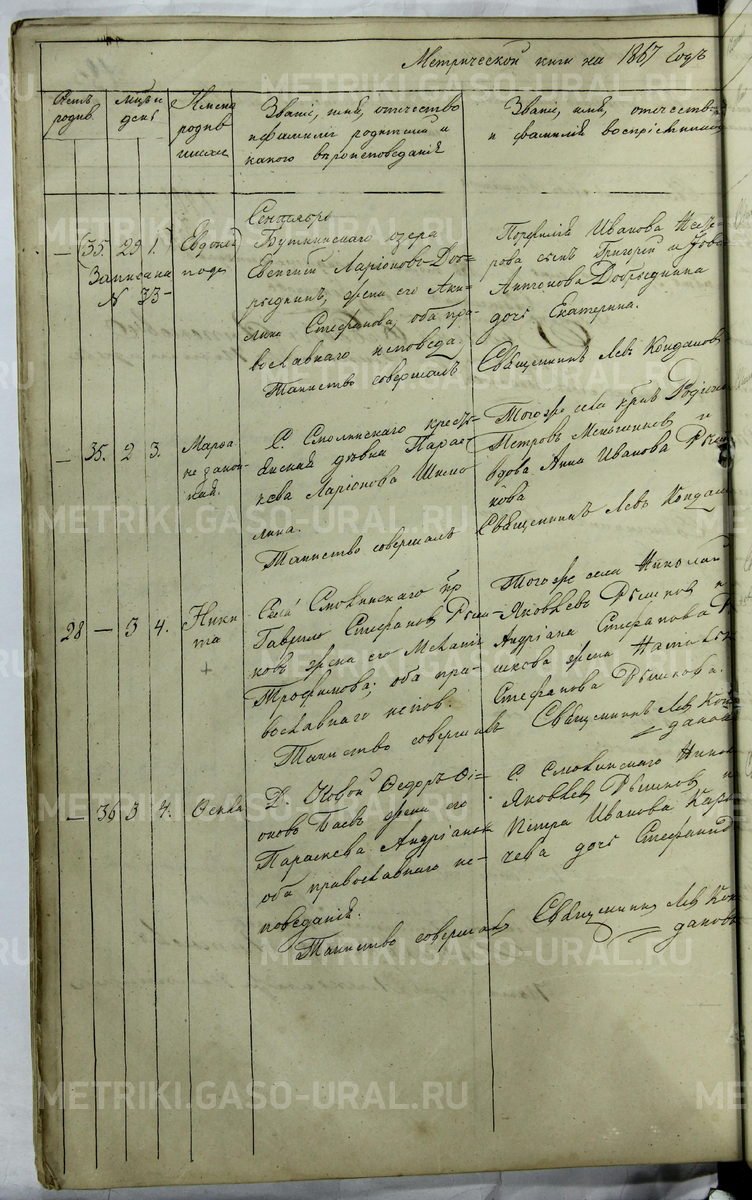 Метрической книги на 1867 годъ
Счетъ родив.
Мѣсяц и день
Имена родив шихся
Званіе, имя, отчество
и фамилія родителей и
какого вѣроисповеданія
Званіе, имя, отчество
и фамилія воспріемник
Сентябрь
— (35. 29 1.)
Записана
N 33—
Евдокія
Буткинскаго озера
Евгеній Ларіоновъ Доб-
рыднинъ, жена его Аки-
лина Стефанова, оба пра-
вославнаго исповеда.
Таинство совершалъ
Порфилія Иванова
сынъ Григорій и
Антонова Добрыднина
дочь Екатерина.
Священникъ Левъ Кондаков
— 35. 2 3.
Марѳа
не закон
ная.
С. Смолинскаго кресть-
янская дѣвка Параск
кева Ларіонова
лина.
Таинство совершалъ
Того же села крѣс
Петровъ Меньшиков и
вдова Анна Иванова Рыш
кова
Священникъ Левъ Кондак
28 — 3 4.
Ники
та
+
Села Смолинскаго кр
Гаврило Стефанов Рыш-
ковъ жена его Мелані
Трофимова, оба пра-
вославнаго испов.
Таинство совершалъ
Того же села Николай
Яковлевъ Рышков и
Андріана Стефанова Р
шкова жена Наталья
Стефанова Рышкова.
Священникъ Лев Кон
даков
— 36 3 4.
Д. Новой Ѳедоръ Ѳі-
оновъ Баевъ жена его
Параскева Андріанов
оба православнаго ис-
поведанія.
Таинство совершалъ
С. Смолинскаго Никол
Яковлев Рышков и
Петра Иванова Кар
чева дочь Стефанид
Священник Лев Кон
даковъ
METRIKI.GASO-URAL.RU